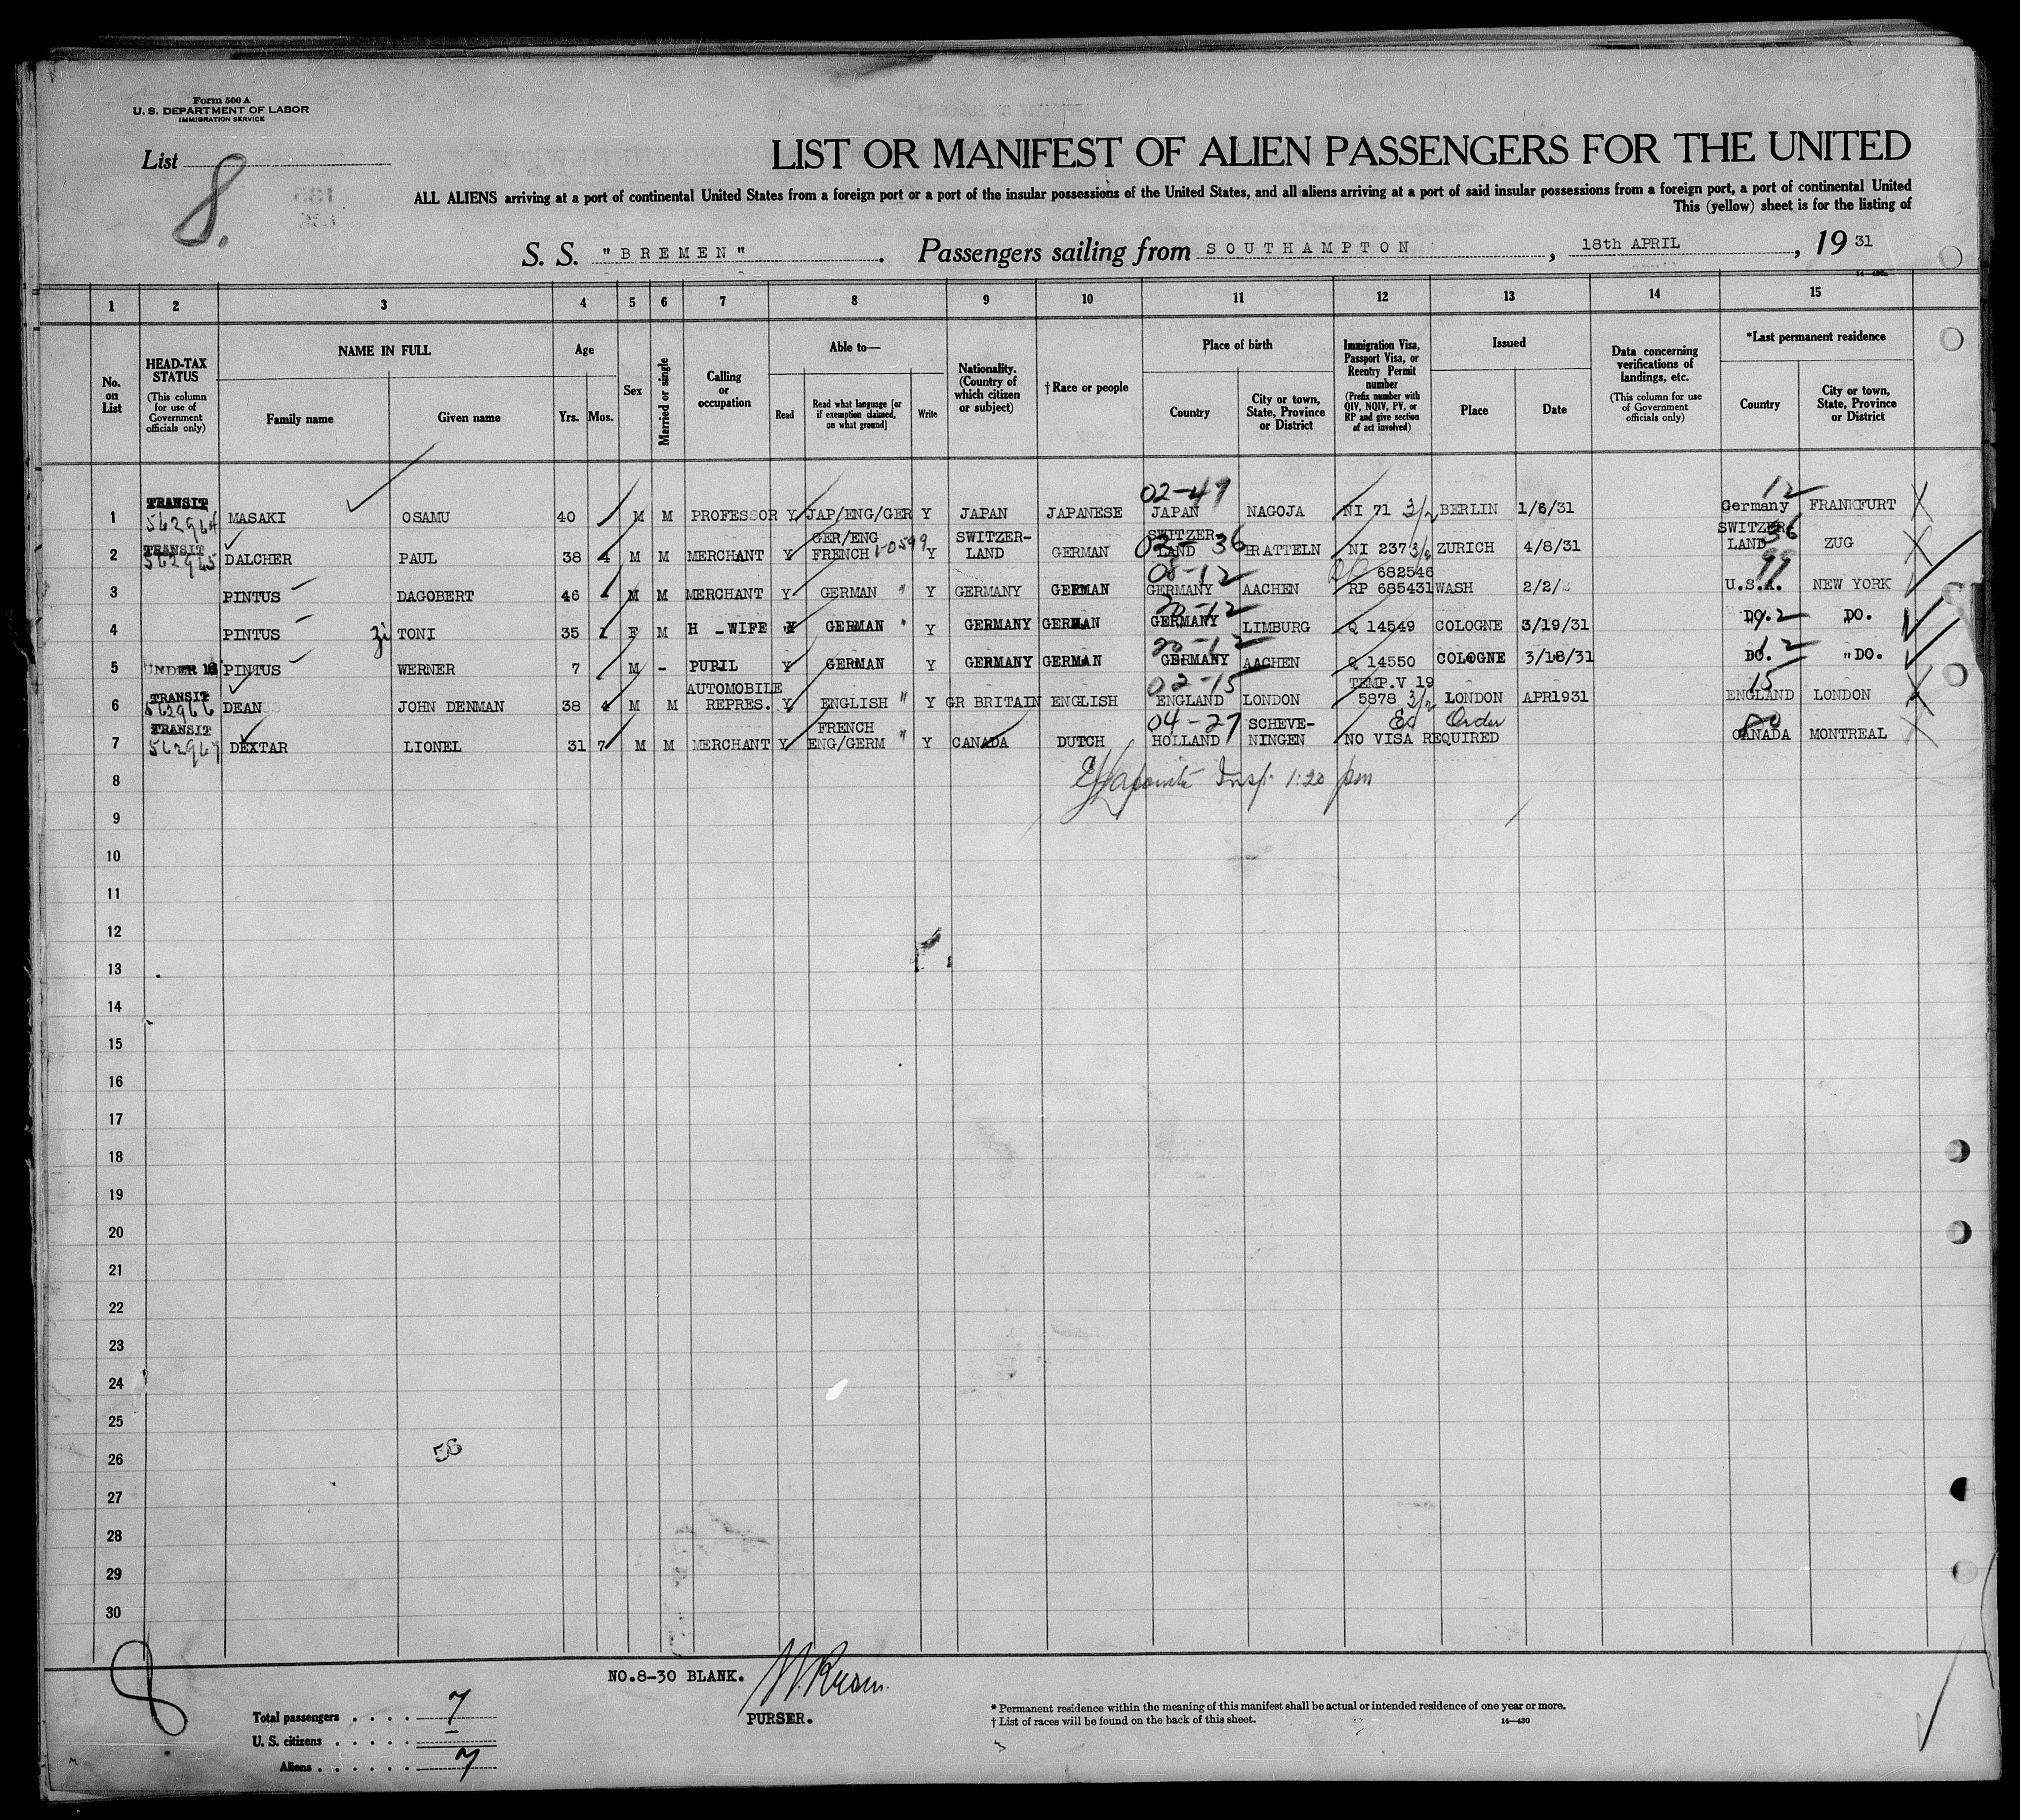 Form 500 A
U. S. DEPARTMENT OF LABOR
IMMIGRATION SERVICE
List
8.
LIST OR MANIFEST OF ALIEN PASSENGERS FOR THE UNITED
ALL ALIENS arriving at a port of continental United States from a foreign port or a port of the insular possessions of the United States, and all aliens arriving at a port of said insular possessions from a foreign port, a port of continental United
This (yellow) sheet is for the listing of
S. S. "BREMEN". Passengers sailing from SOUTHAMPTON, 18th APRIL, 19 31
1 2 3 4 5 6 7 8 9 10 11 12 13 14 15
No. on List
HEAD-TAX STATUS (This column for use of Government officials only)
NAME IN FULL
Family name Given name
Age
Yrs. Mos.
Sex
Married or single
Calling or occupation
Able to—
Read Read what language [or if exemption claimed, on what ground] Write
Nationality. (Country of which citizen or subject)
† Race or people
Place of birth
Country City or town, State, Province or District
Immigration Visa, Passport Visa, or Reentry Permit number (Prefix number with QIV, NQIV, PV, or RP and give section of act involved)
Issued
Place Date
Data concerning verifications of landings, etc. (This column for use of Government officials only)
*Last permanent residence
Country City or town, State, Province or District
1 TRANSIT 562964 MASAKI OSAMU 40 M M PROFESSOR Y JAP/ENG/GER Y JAPAN JAPANESE 02-47 JAPAN NAGOJA NI 71 3/2 BERLIN 1/6/31 12 Germany FRANKFURT
2 TRANSIT 562965 DALCHER PAUL 38 4 M M MERCHANT Y GER/ENG FRENCH 1-0599 Y SWITZER-LAND GERMAN SWITZER-LAND 02-36 PRATTELN NI 237 3/2 ZURICH 4/8/31 SWITZER LAND 36 ZUG
3 PINTUS DAGOBERT 46 M M MERCHANT Y GERMAN " Y GERMANY GERMAN 08-12 GERMANY AACHEN 682546 RP 685431 WASH 2/2/ 99 U.S.A. NEW YORK
4 PINTUS TONI 35 F M H -WIFE Y GERMAN " Y GERMANY GERMAN 20-12 GERMANY LIMBURG Q 14549 COLOGNE 3/19/31 DO. DO.
5 UNDER 16 PINTUS WERNER 7 M - PUPIL Y GERMAN Y GERMANY GERMAN 20-12 GERMANY AACHEN Q 14550 COLOGNE 3/18/31 12 DO. "DO.
6 TRANSIT 562966 DEAN JOHN DENMAN 38 4 M M AUTOMOBILE REPRES. Y ENGLISH " Y GR BRITAIN ENGLISH 02-15 ENGLAND LONDON TEMP.V 19 5878 3/2 LONDON APR1931 15 ENGLAND LONDON
7 TRANSIT 562967 DEXTAR LIONEL 31 7 M M MERCHANT Y FRENCH ENG/GERM " Y CANADA DUTCH 04-27 HOLLAND SCHEVE-NINGEN Ex Order NO VISA REQUIRED CANADA MONTREAL
8 Insp. 1:20 pm
9
10
11
12
13
14
15
16
17
18
19
20
21
22
23
24
25
26
27
28
29
30
8
NO.8-30 BLANK.
PURSER.
Total passengers . . . . 7
U. S. citizens . . . . .
Aliens . . . . . . 7
* Permanent residence within the meaning of this manifest shall be actual or intended residence of one year or more.
† List of races will be found on the back of this sheet. 14—430